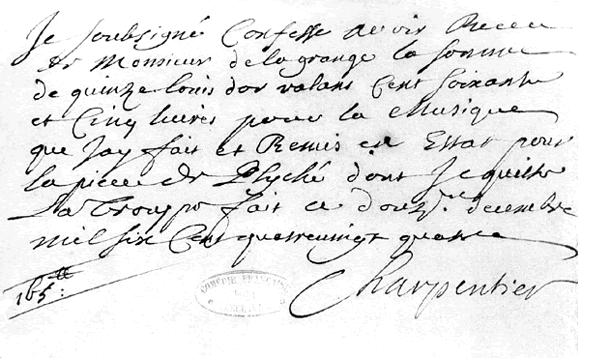 Je soubsigné Confesse avoir Receu
de Monsieur de la grange la somme
de quinze louis dor valans Cent soixante
et Cinq livres pour la Musique
que Jay fait et Remis en Estat pour
la piece de Psyché dont Je quitte
La Troupe fait ce douze. decembre
mil six Cent quatrevingt quatre
165 ₶:
Charpentier
COMÉDIE FRANÇAISE